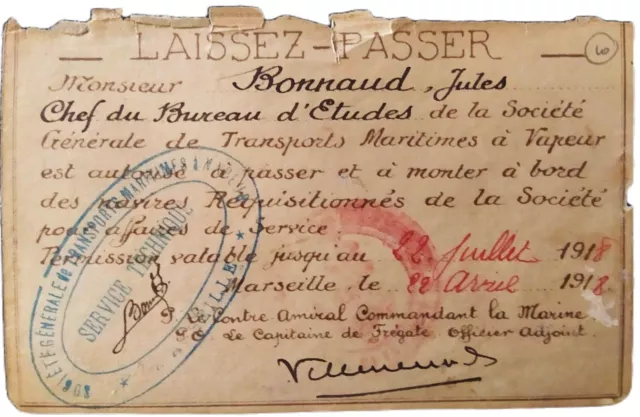 LAISSEZ-PASSER
6
Monsieur Bonnaud, Jules
Chef du Bureau d'Etudes de la Société
Générale de Transports Maritimes à Vapeur
est autorisé à passer et à monter à bord
des navires Réquisitionnés de la Société
pour affaires de Service.
Permission valable jusqu'au 22 Juillet 1918
Marseille, le 22 Avril 1918
P. Le Contre Amiral Commandant la Marine
P.O. Le Capitaine de Frégate Officier Adjoint.
SOCIÉTÉ GÉNÉRALE DE TRANSPORTS MARITIMES À VAPEUR
SERVICE TECHNIQUE